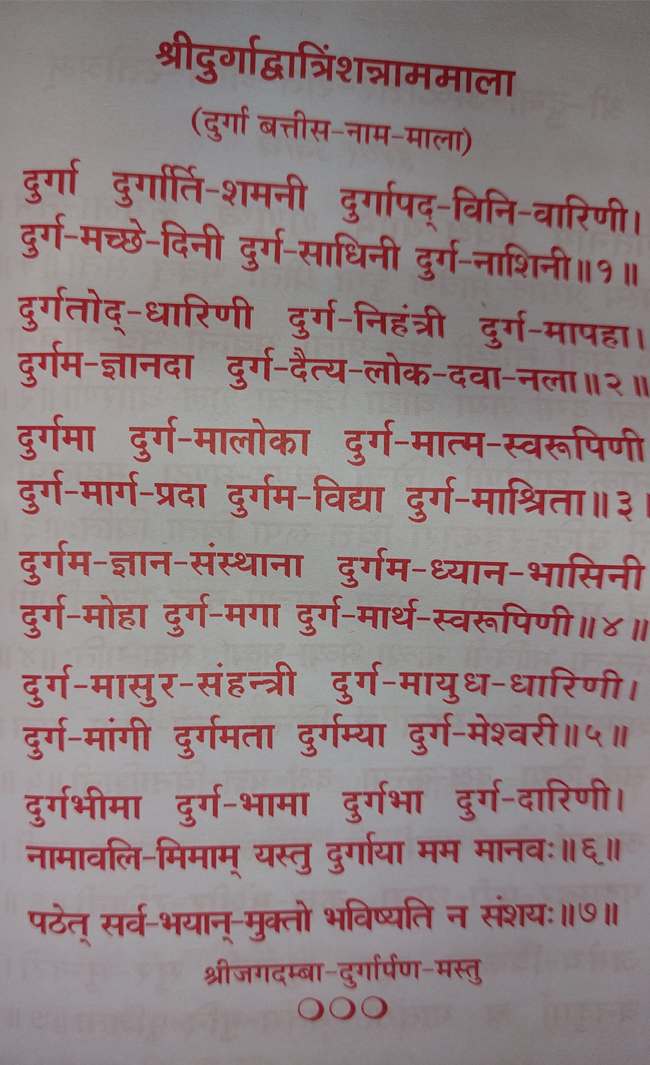 श्रीदुर्गाद्वात्रिंशन्नाममाला
(दुर्गा बत्तीस-नाम-माला)
दुर्गा दुर्गार्ति-शमनी दुर्गापद्-विनि-वारिणी।
दुर्ग-मच्छे-दिनी दुर्ग-साधिनी दुर्ग-नाशिनी॥१॥
दुर्गतोद्-धारिणी दुर्ग-निहंत्री दुर्ग-मापहा।
दुर्गम-ज्ञानदा दुर्ग-दैत्य-लोक-दवा-नला॥२॥
दुर्गमा दुर्ग-मालोका दुर्ग-मात्म-स्वरूपिणी
दुर्ग-मार्ग-प्रदा दुर्गम-विद्या दुर्ग-माश्रिता॥३।
दुर्गम-ज्ञान-संस्थाना दुर्गम-ध्यान-भासिनी
दुर्ग-मोहा दुर्ग-मगा दुर्ग-मार्थ-स्वरूपिणी॥४॥
दुर्ग-मासुर-संहन्त्री दुर्ग-मायुध-धारिणी।
दुर्ग-मांगी दुर्गमता दुर्गम्या दुर्ग-मेश्वरी॥५॥
दुर्गभीमा दुर्ग-भामा दुर्गभा दुर्ग-दारिणी।
नामावलि-मिमाम् यस्तु दुर्गाया मम मानवः॥६॥
पठेत् सर्व-भयान्-मुक्तो भविष्यति न संशयः॥७॥
श्रीजगदम्बा-दुर्गार्पण-मस्तु